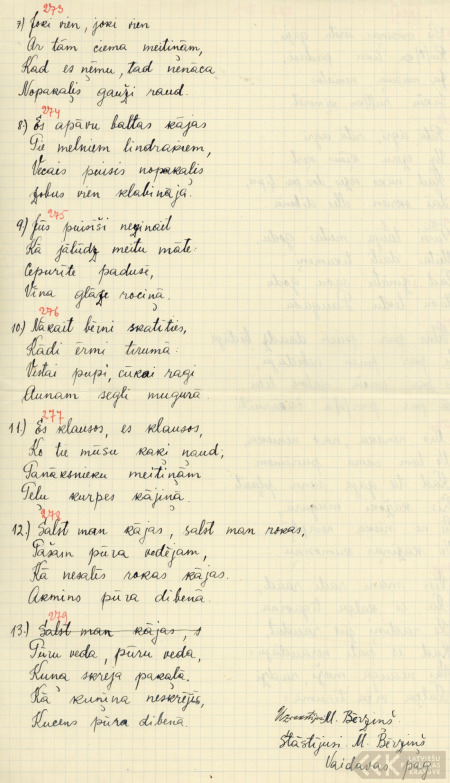 273
7.) Joki vien, joki vien
Ar tām ciema meitiņām,
Kad es ņēmu, tad nenāca
Nopakaļis gauži raud.
274
8.) Es apāvu baltas kājas
Pie melniem lindrakiem,
Vecais puisis nopakaļis
Zobus vien klabināja.
275
9.) Jūs puisīši nezinait
Kā jālūdz meitu māte:
Cepurīte padusē,
Vīna glāze rociņā.
276
10.) Nākait bērni skatīties,
Kādi ērmi tīrumā:
Vistai pupi, cūkai ragi
Aunam segli mugurā.
277
11.) Es klausos, es klausos,
Ko tie mūsu kaķi ņaud;
Panāksnieku meitiņām
Peļu kurpes kājiņā.
278
12.) Salst man kājas, salst man rokas,
Pašam pūra vedējam,
Kā nesalis rokas kājas.
Akmins pūra dibenā.
279
13.) Salst man kājas, s
Pūru veda, pūru veda,
Kuņa skrēja pakaļā.
Kā kuņiņa neskrējis,
Kucens pūra dibenā.
Uzrakstījusi M. Bērziņš.
Stāstījusi M. Bērziņš
Vaidavas pag.
LATVIEŠU
FOLKLORAS
KRĀTUVE